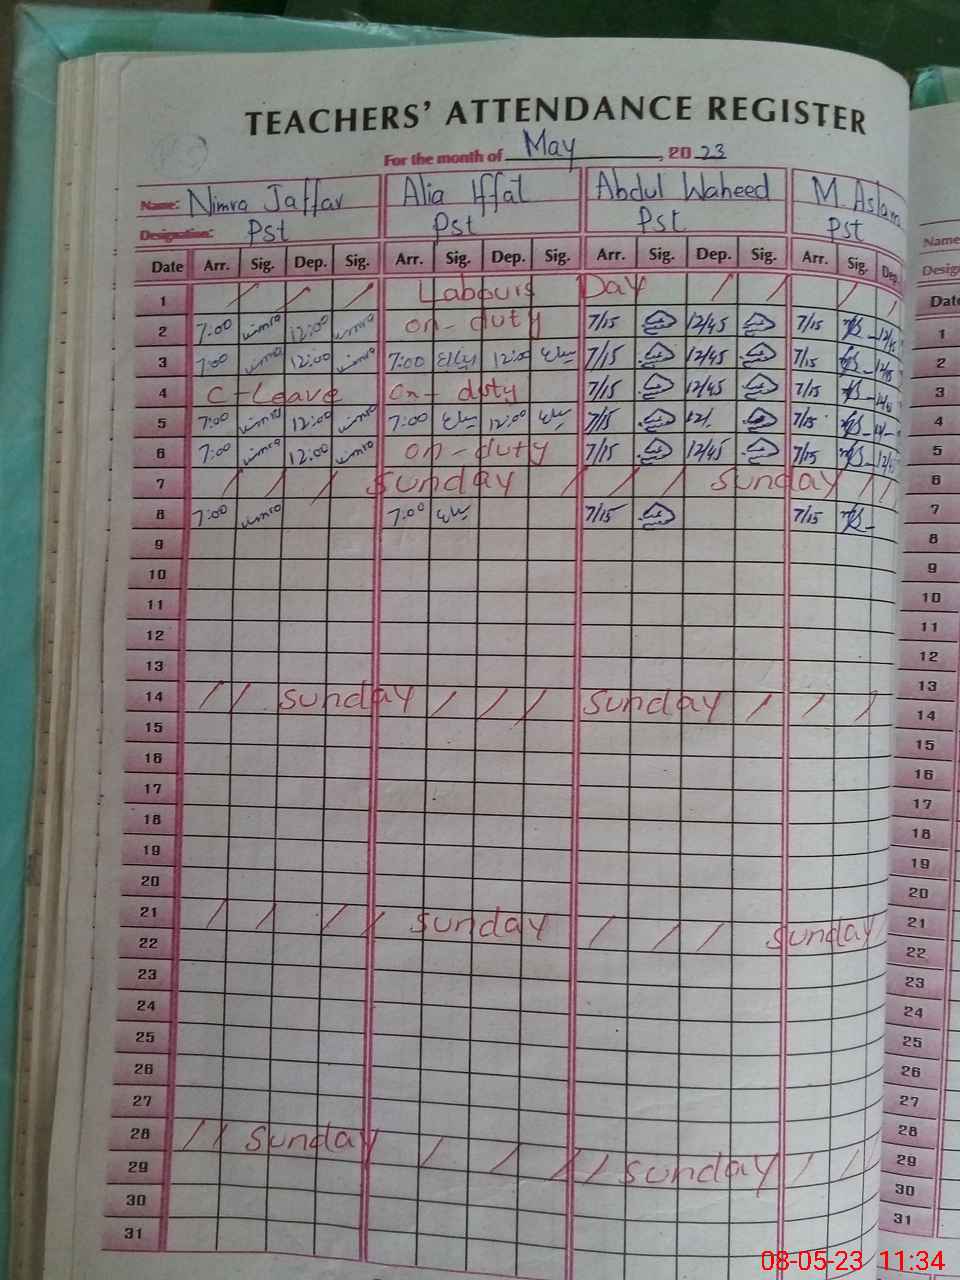 TEACHERS' ATTENDANCE REGISTER
For the month of May, 20 23
Name: Nimra Jaffar Alia Iffat Abdul Waheed M Aslam
Designation: Pst Pst Pst Pst
Date Arr. Sig. Dep. Sig. Arr. Sig. Dep. Sig. Arr. Sig. Dep. Sig. Arr. Sig. Dep.
1 Labours Day
2 7:00 nimra 12:00 nimra on-duty 7/15 12/45 7/15 12/45
3 7:00 nimra 12:00 nimra 7:00 12:00 7/15 12/45 7/15 12/45
4 C-Leave on-duty 7/15 12/45 7/15 12/45
5 7:00 nimra 12:00 nimra 7:00 12:00 7/15 12/ 7/15
6 7:00 nimra 12:00 nimra on-duty 7/15 12/45 7/15 12/45
7 Sunday Sunday
8 7:00 nimra 7:00 7/15 7/15
9
10
11
12
13
14 Sunday Sunday
15
16
17
18
19
20
21 Sunday Sunday
22
23
24
25
26
27
28 Sunday Sunday
29
30
31
Name
Desig
Date
1
2
3
4
5
6
7
8
9
10
11
12
13
14
15
16
17
18
19
20
21
22
23
24
25
26
27
28
29
30
31
08-05-23 11:34